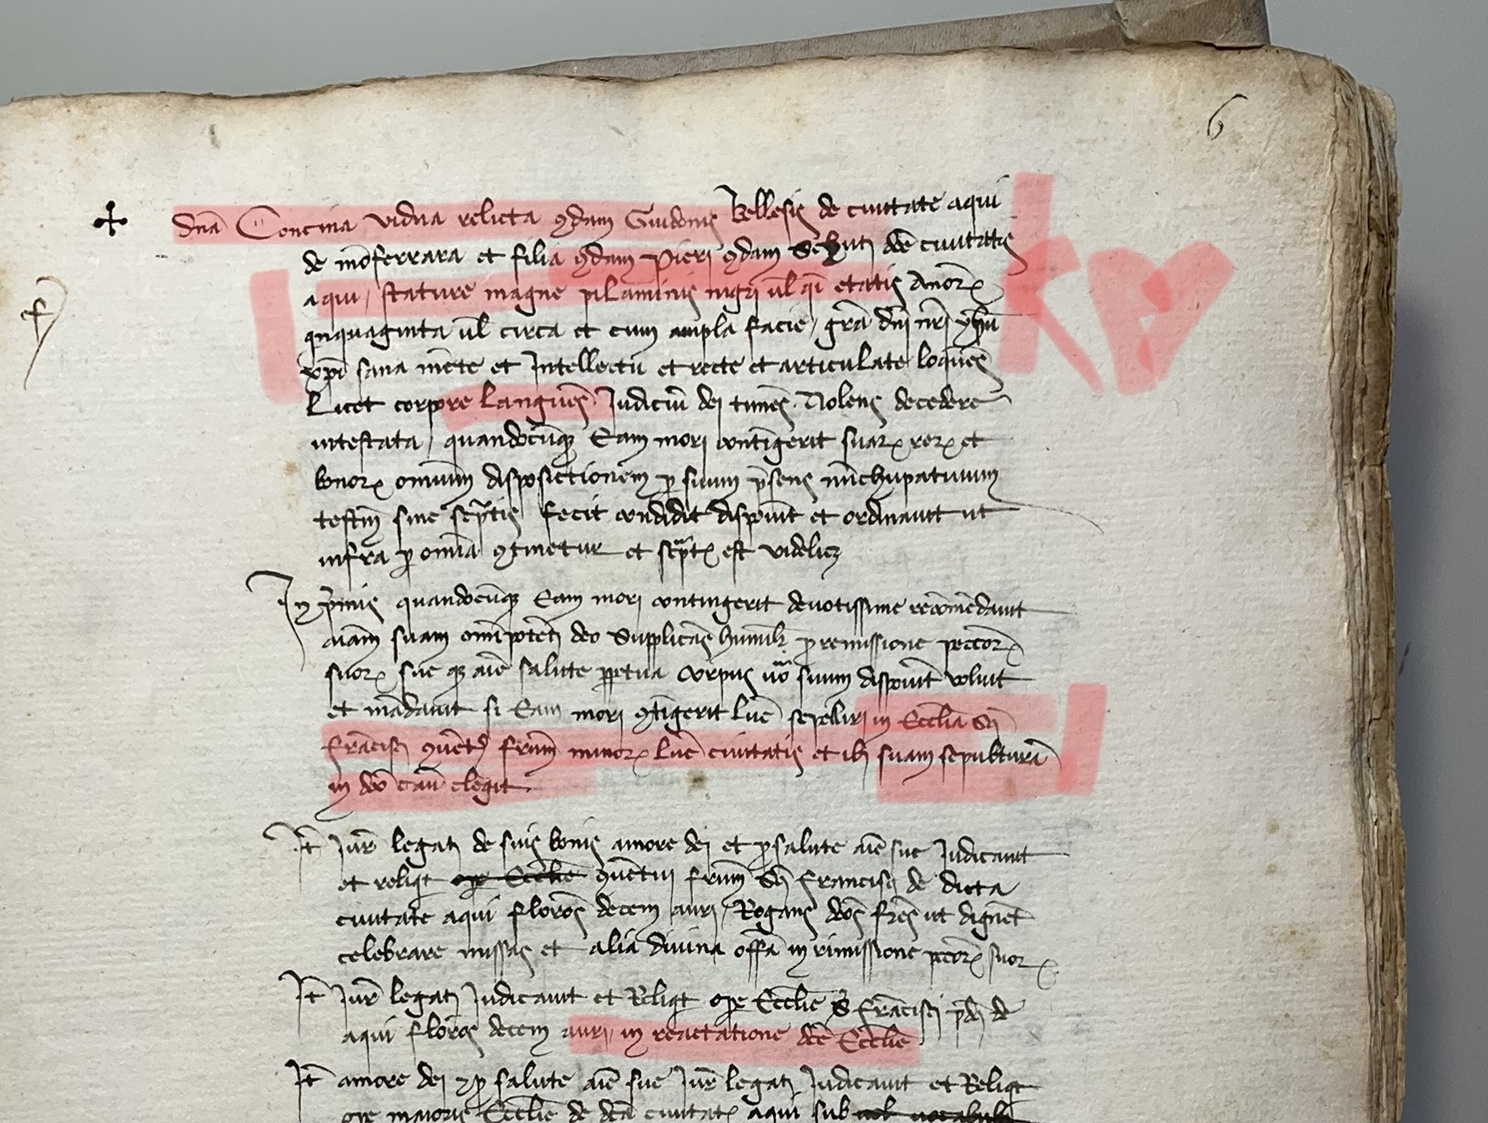 6
Dna Concina vidua relicta qdam Guidonis Bellesis de civitate aqui
de moferrara et filia qdam Pieri qdam dce civitatis
aqui / stature magne pilaminis nigri vl qi etatis Anor
qnquaginta vl circa et cum ampla facie / gra dni nri yhu
xpi sana mete et Intellectu et recte et articulate loques
Licet corpore Langues Judiciu dei times. Nolens decedere
intestata / quandocuqz Eam mori contigerit suar rer et
bonor omium dispositionem p suum psens nuchupativum
testm sine scptis fecit condidit disposuit et ordinavit ut
infra p omia qtinetur et scpt est videlicz
In pmis quandocuqz Eam mori contingerit devotissime recomedavit
aiam suam omipoteti deo Supplicas humilr p remissione peccor
suor sue qz aie salute ppetua Corpus vo suum disposuit voluit
et madavit si Eam mori qtigerit Luce sepelliri in Ecclia Sci
fracisci quetus frum minor Luce civitatis et ibi suam sepultura
in dco casu elegit
It Jure legati de suis bonis amore dei et p salute aie sue Judicavit
et reliqt ope Ecclie quetui frum Sci francisci de dicta
civitate aqui floros decem auri / Rogans dcos fres ut dignet
celebrare missas et alia divina offa in rimissione pctor suor
It Jure legati Judicavit et Reliqt ope Ecclie S fracisci pdci de
aqui floros decem auri in reactatione dce Ecclie
It amore dei et p salute aie sue Jure legati Judicavit et Reliqt
ope maioris Ecclie de dca civitat aqui sub